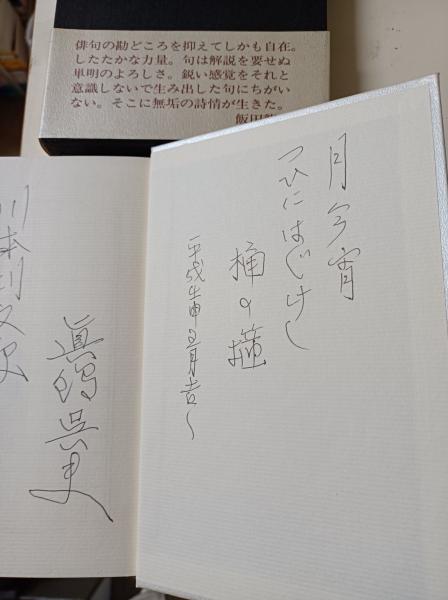 俳句の勘どころを抑えてしかも自在。
したたかな力量。句は解説を要せぬ
単明のよろしさ。鋭い感覚をそれと
意識しないで生み出した句にちがい
ない。そこに無垢の詩情が生きた。
飯田
月今宵
つひにはじけし
桶の
平成壬申
眞鍋呉夫
川本